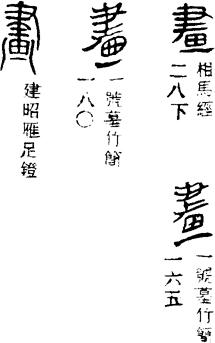 畫
相馬經
二八下
畫
一號墓竹簡
一六五
畫
一號墓竹簡
一八〇
畫
建昭雁足鐙